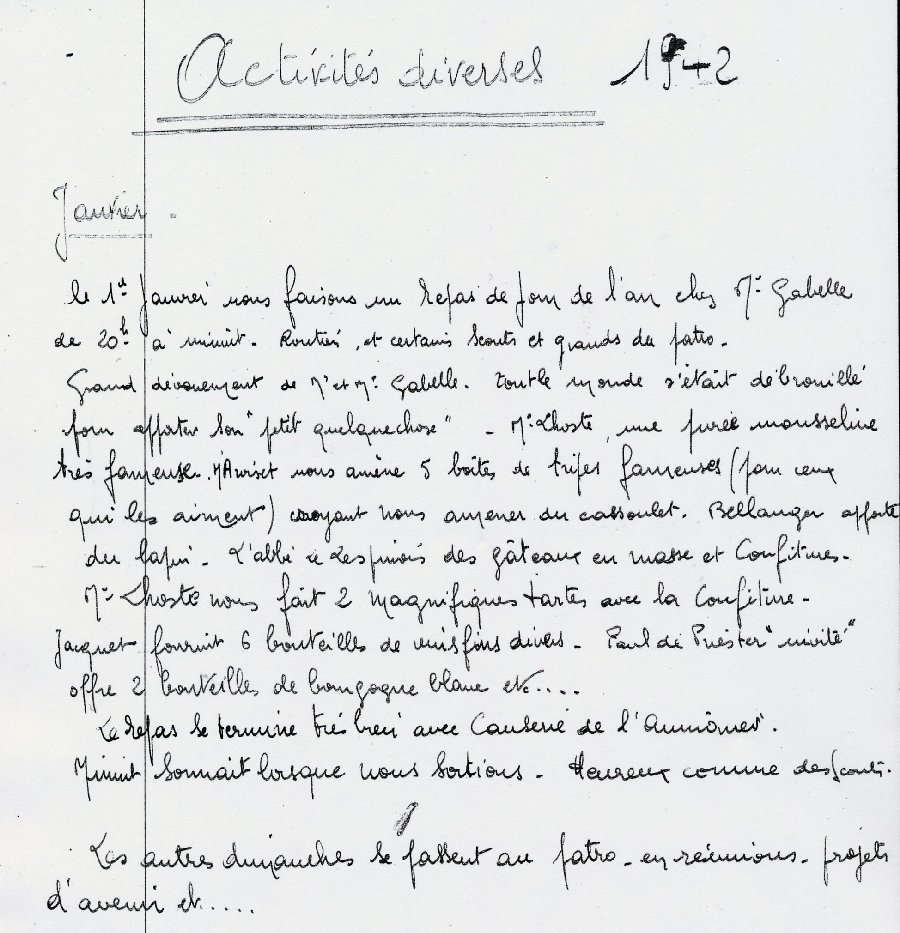 Activités diverses 1942
Janvier.
le 1er Janvier nous faisons un repas de jour de l'an chez Me Gabelle
de 20h à minuit. Routiers, et certains scouts et grands du patro.
Grand dévouement de Mr et Me Gabelle. Tout le monde s'était débrouillé
pour apporter son "petit quelquechose" - Me Lhoste, une purée mousseline
très fameuse. Mr Auriset nous amène 5 boîtes de tripes fameuses (pour ceux
qui les aiment) croyant nous amener du cassoulet. Bellanger apporte
du lapin. L'abbé des gâteaux en masse et Confitures.
Me Lhoste nous fait 2 magnifiques tartes avec la Confiture.
Jacquet fournit 6 bouteilles de vins fins divers. Paul de Priester "invité"
offre 2 bouteilles de bourgogne blanc etc....
Le repas se termine très bien avec Causerie de l'Aumônier.
Minuit sonnait lorsque nous sortions - Heureux comme des scouts.
Les autres dimanches se passent au patro - en réunions - projets
d'avenir etc.....